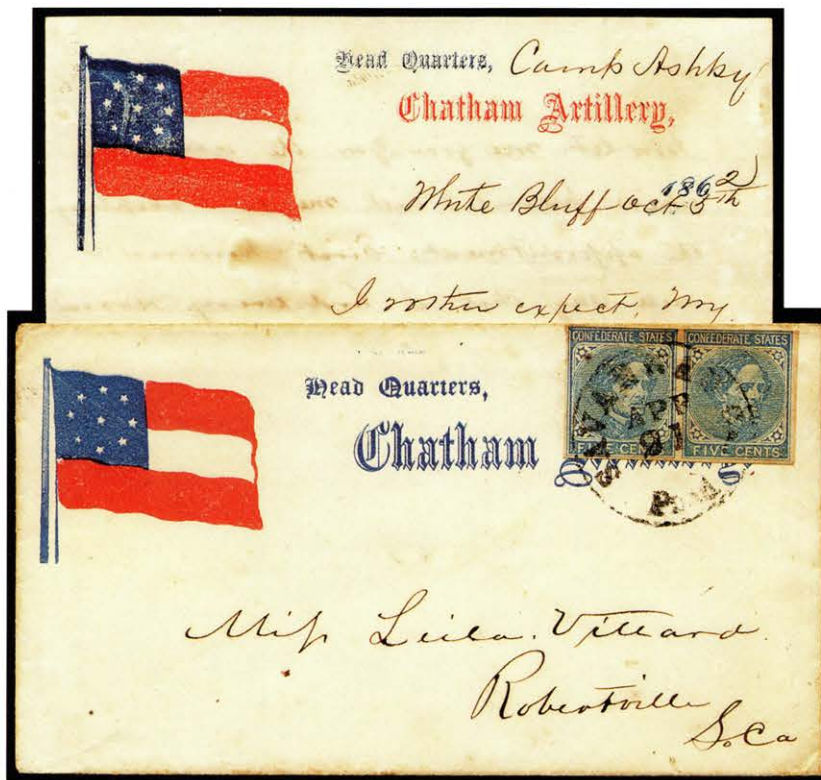 Head Quarters, Camp Ashby
Chatham Artillery,
White Bluff Oct. 5th 1862
I rather expect, My
Head Quarters,
Chatham
CONFEDERATE STATES
FIVE CENTS
CONFEDERATE STATES
FIVE CENTS
SAVANNAH
APR
Paid
Miss Leila. Villard.
Robertville
So. Ca